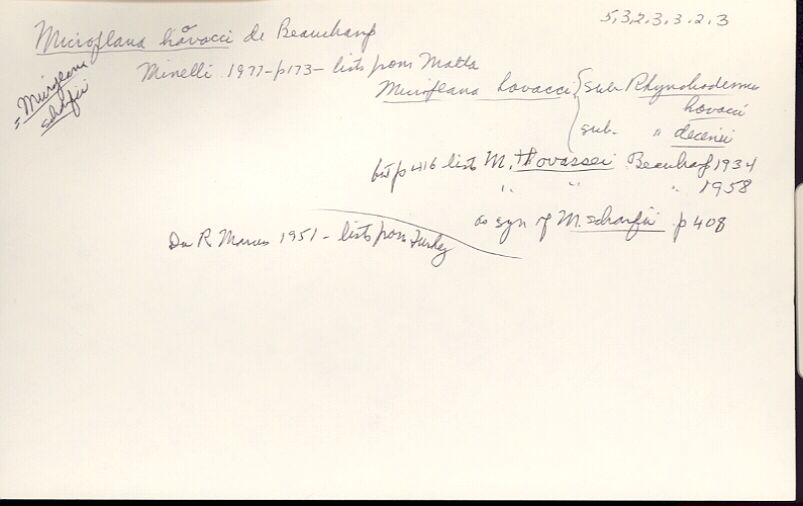 5,3,2,3,3.2.3
Microplana hovacci de Beauchamp
= Microplana scharfii
Minelli 1977-p173- lists from Malta
Microplana hovacci { sub Rhynchodemus hovacci
sub. " decenii
but p 416 lists M. Hovassei Beauchamp 1934
" " " 1958
as syn of M. scharfii p 408
Du R Marcus 1951 - lists from Turkey